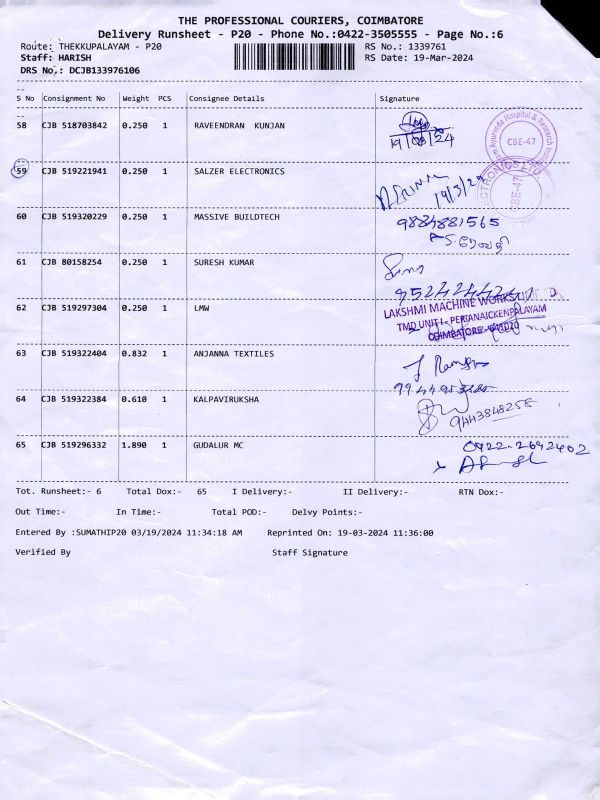 THE PROFESSIONAL COURIERS, COIMBATORE
Delivery Runsheet - P20 - Phone No.:0422-3505555 - Page No.:6
Route: THEKKUPALAYAM - P20 RS No.: 1339761
Staff: HARISH RS Date: 19-Mar-2024
DRS No.: DCJB133976106
S No Consignment No Weight PCS Consignee Details Signature
58 CJB 518703842 0.250 1 RAVEENDRAN KUNJAN
19/03/24
Ayurveda Hospital & Research
CBE-47
59 CJB 519221941 0.250 1 SALZER ELECTRONICS
19/3/24
CTRONICS LTD
CBE-47
60 CJB 519320229 0.250 1 MASSIVE BUILDTECH 9884881565
61 CJB 80158254 0.250 1 SURESH KUMAR
62 CJB 519297304 0.250 1 LMW
LAKSHMI MACHINE WORKS
TMD UNIT I - PERIANAICKENPALAYAM
COIMBATORE - 641020
63 CJB 519322404 0.832 1 ANJANNA TEXTILES
64 CJB 519322384 0.610 1 KALPAVIRUKSHA 9443848258
65 CJB 519296332 1.890 1 GUDALUR MC 0422-2692402
Tot. Runsheet:- 6 Total Dox:- 65 I Delivery:- II Delivery:- RTN Dox:-
Out Time:- In Time:- Total POD:- Delvy Points:-
Entered By :SUMATHIP20 03/19/2024 11:34:18 AM Reprinted On: 19-03-2024 11:36:00
Verified By Staff Signature